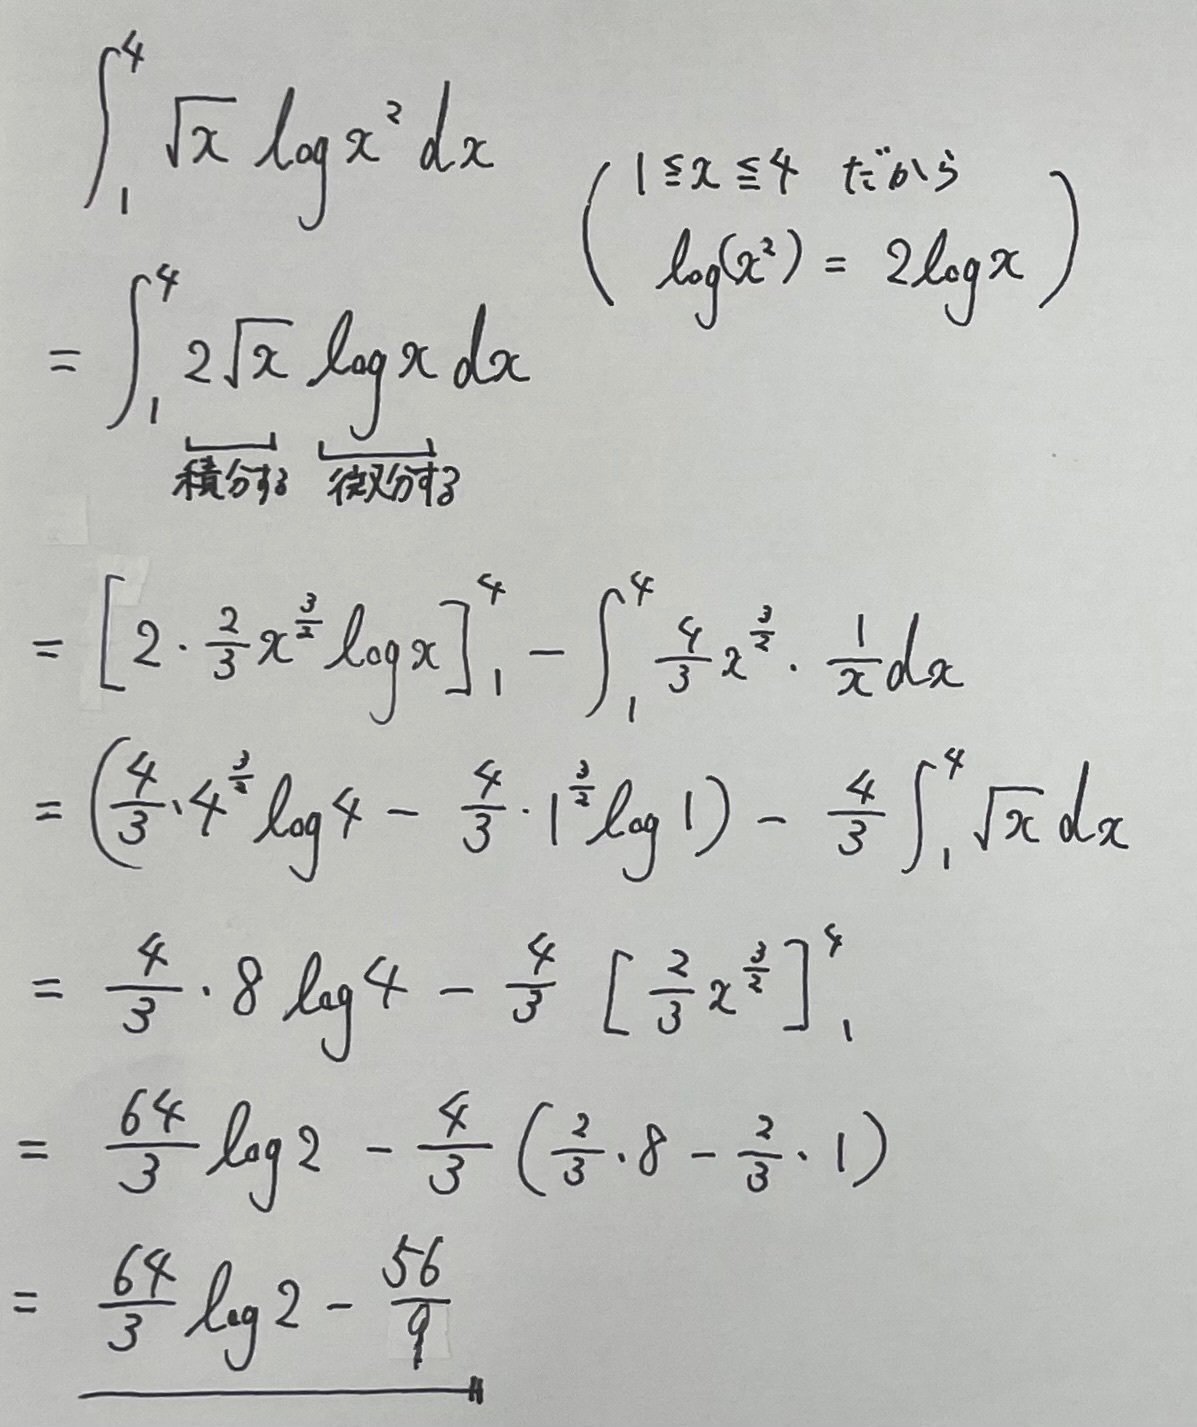 ∫₁⁴ √x log x² dx
(1 ≦ x ≦ 4 だから
log(x²) = 2 log x)
= ∫₁⁴ 2√x log x dx
積分する 微分する
= [2・2/3 x^(3/2) log x]₁⁴ − ∫₁⁴ 4/3 x^(3/2)・1/x dx
= (4/3・4^(3/2) log 4 − 4/3・1^(3/2) log 1) − 4/3 ∫₁⁴ √x dx
= 4/3・8 log 4 − 4/3 [2/3 x^(3/2)]₁⁴
= 64/3 log 2 − 4/3 (2/3・8 − 2/3・1)
= 64/3 log 2 − 56/9